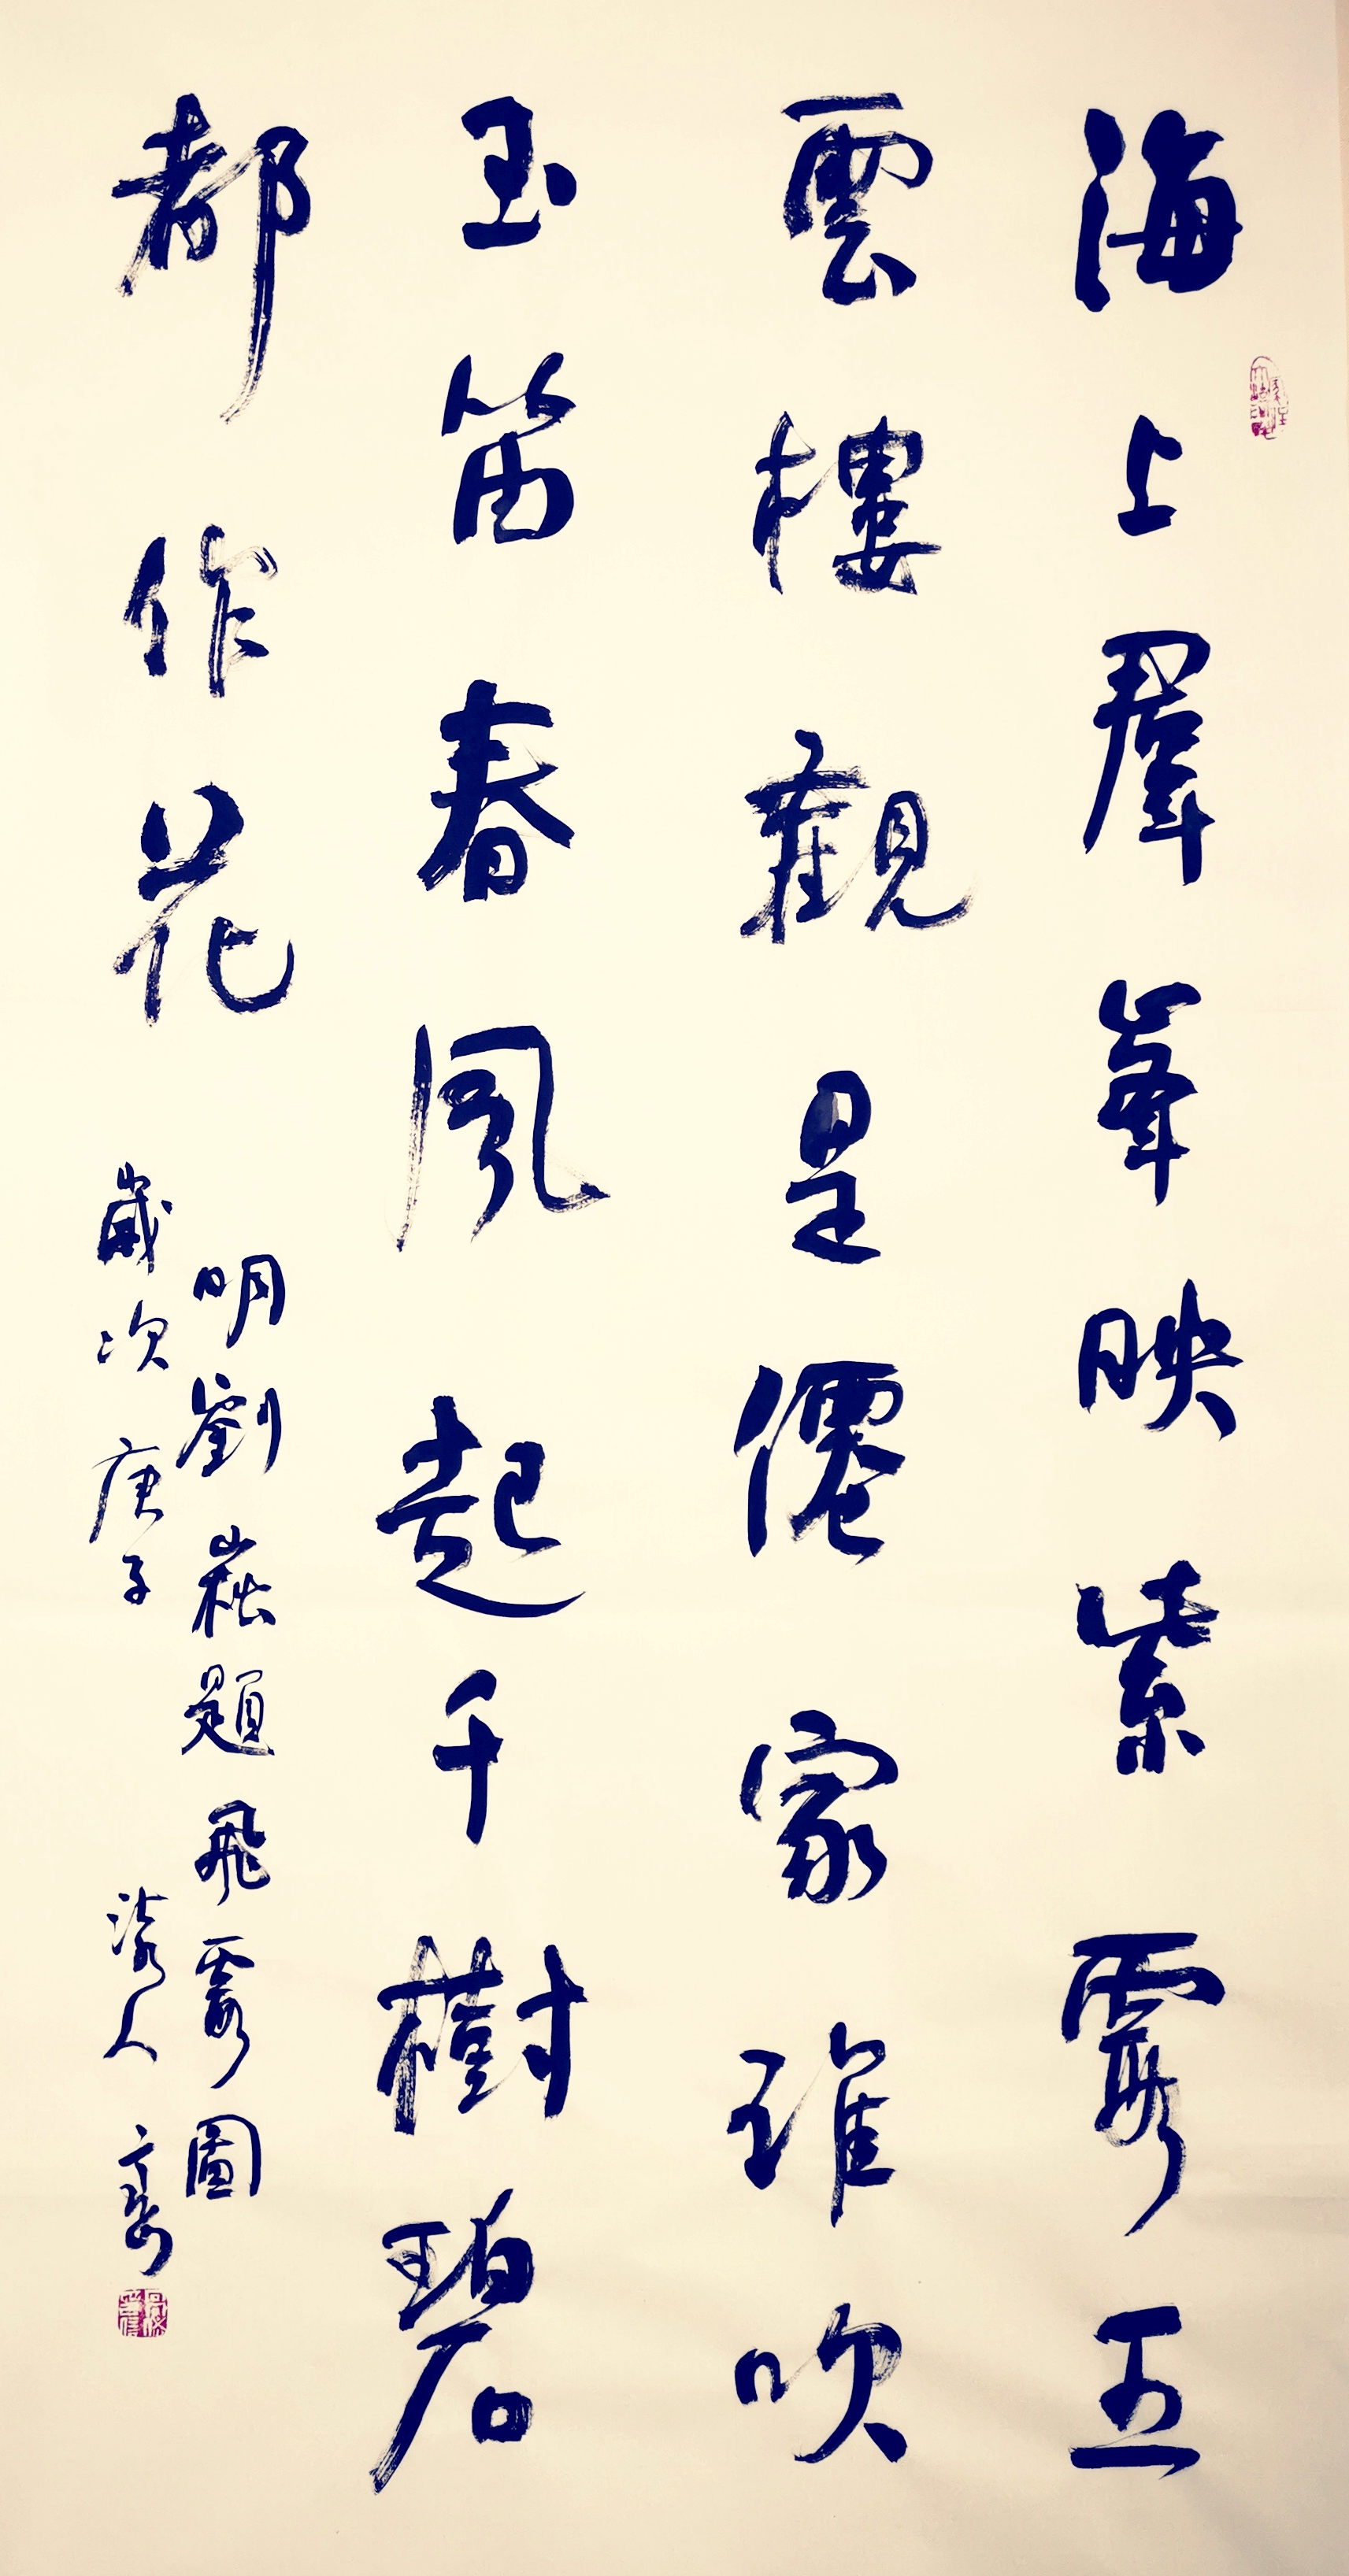 海上羣峯映紫霞五
雲樓觀是僊家誰吹
玉笛春風起千樹碧
都作花
明劉崧題飛霞圖
歲次庚子